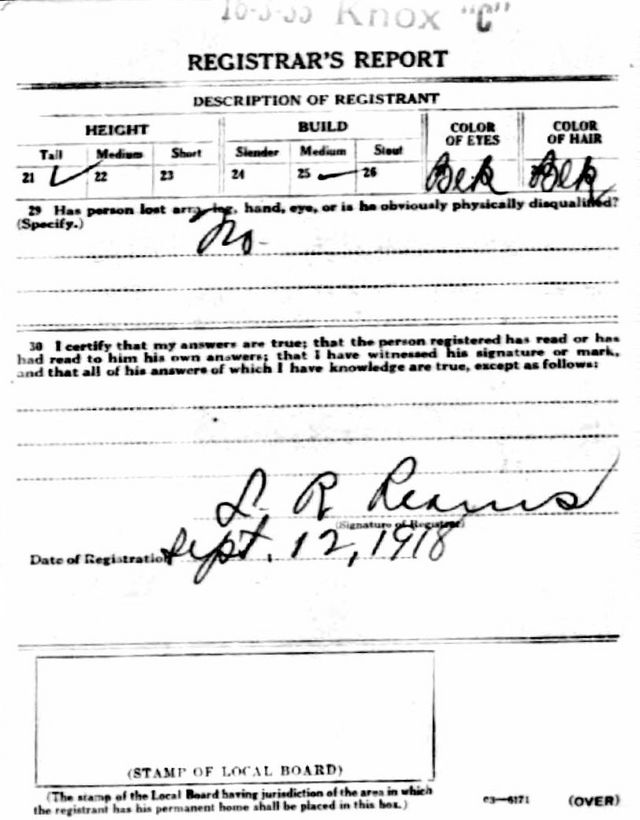 16-3-35 Knox "C"
REGISTRAR'S REPORT
DESCRIPTION OF REGISTRANT
HEIGHT BUILD COLOR OF EYES COLOR OF HAIR
Tall Medium Short Slender Medium Stout
21 ✓ 22 23 24 25 ✓ 26 Blk Blk
29 Has person lost arm, leg, hand, eye, or is he obviously physically disqualified?
(Specify.) No.
30 I certify that my answers are true; that the person registered has read or has
had read to him his own answers; that I have witnessed his signature or mark,
and that all of his answers of which I have knowledge are true, except as follows:
S. R. Reams
(Signature of Registrar)
Date of Registration Sept. 12, 1918
(STAMP OF LOCAL BOARD)
(The stamp of the Local Board having jurisdiction of the area in which
the registrant has his permanent home shall be placed in this box.)
03—6171 (OVER)